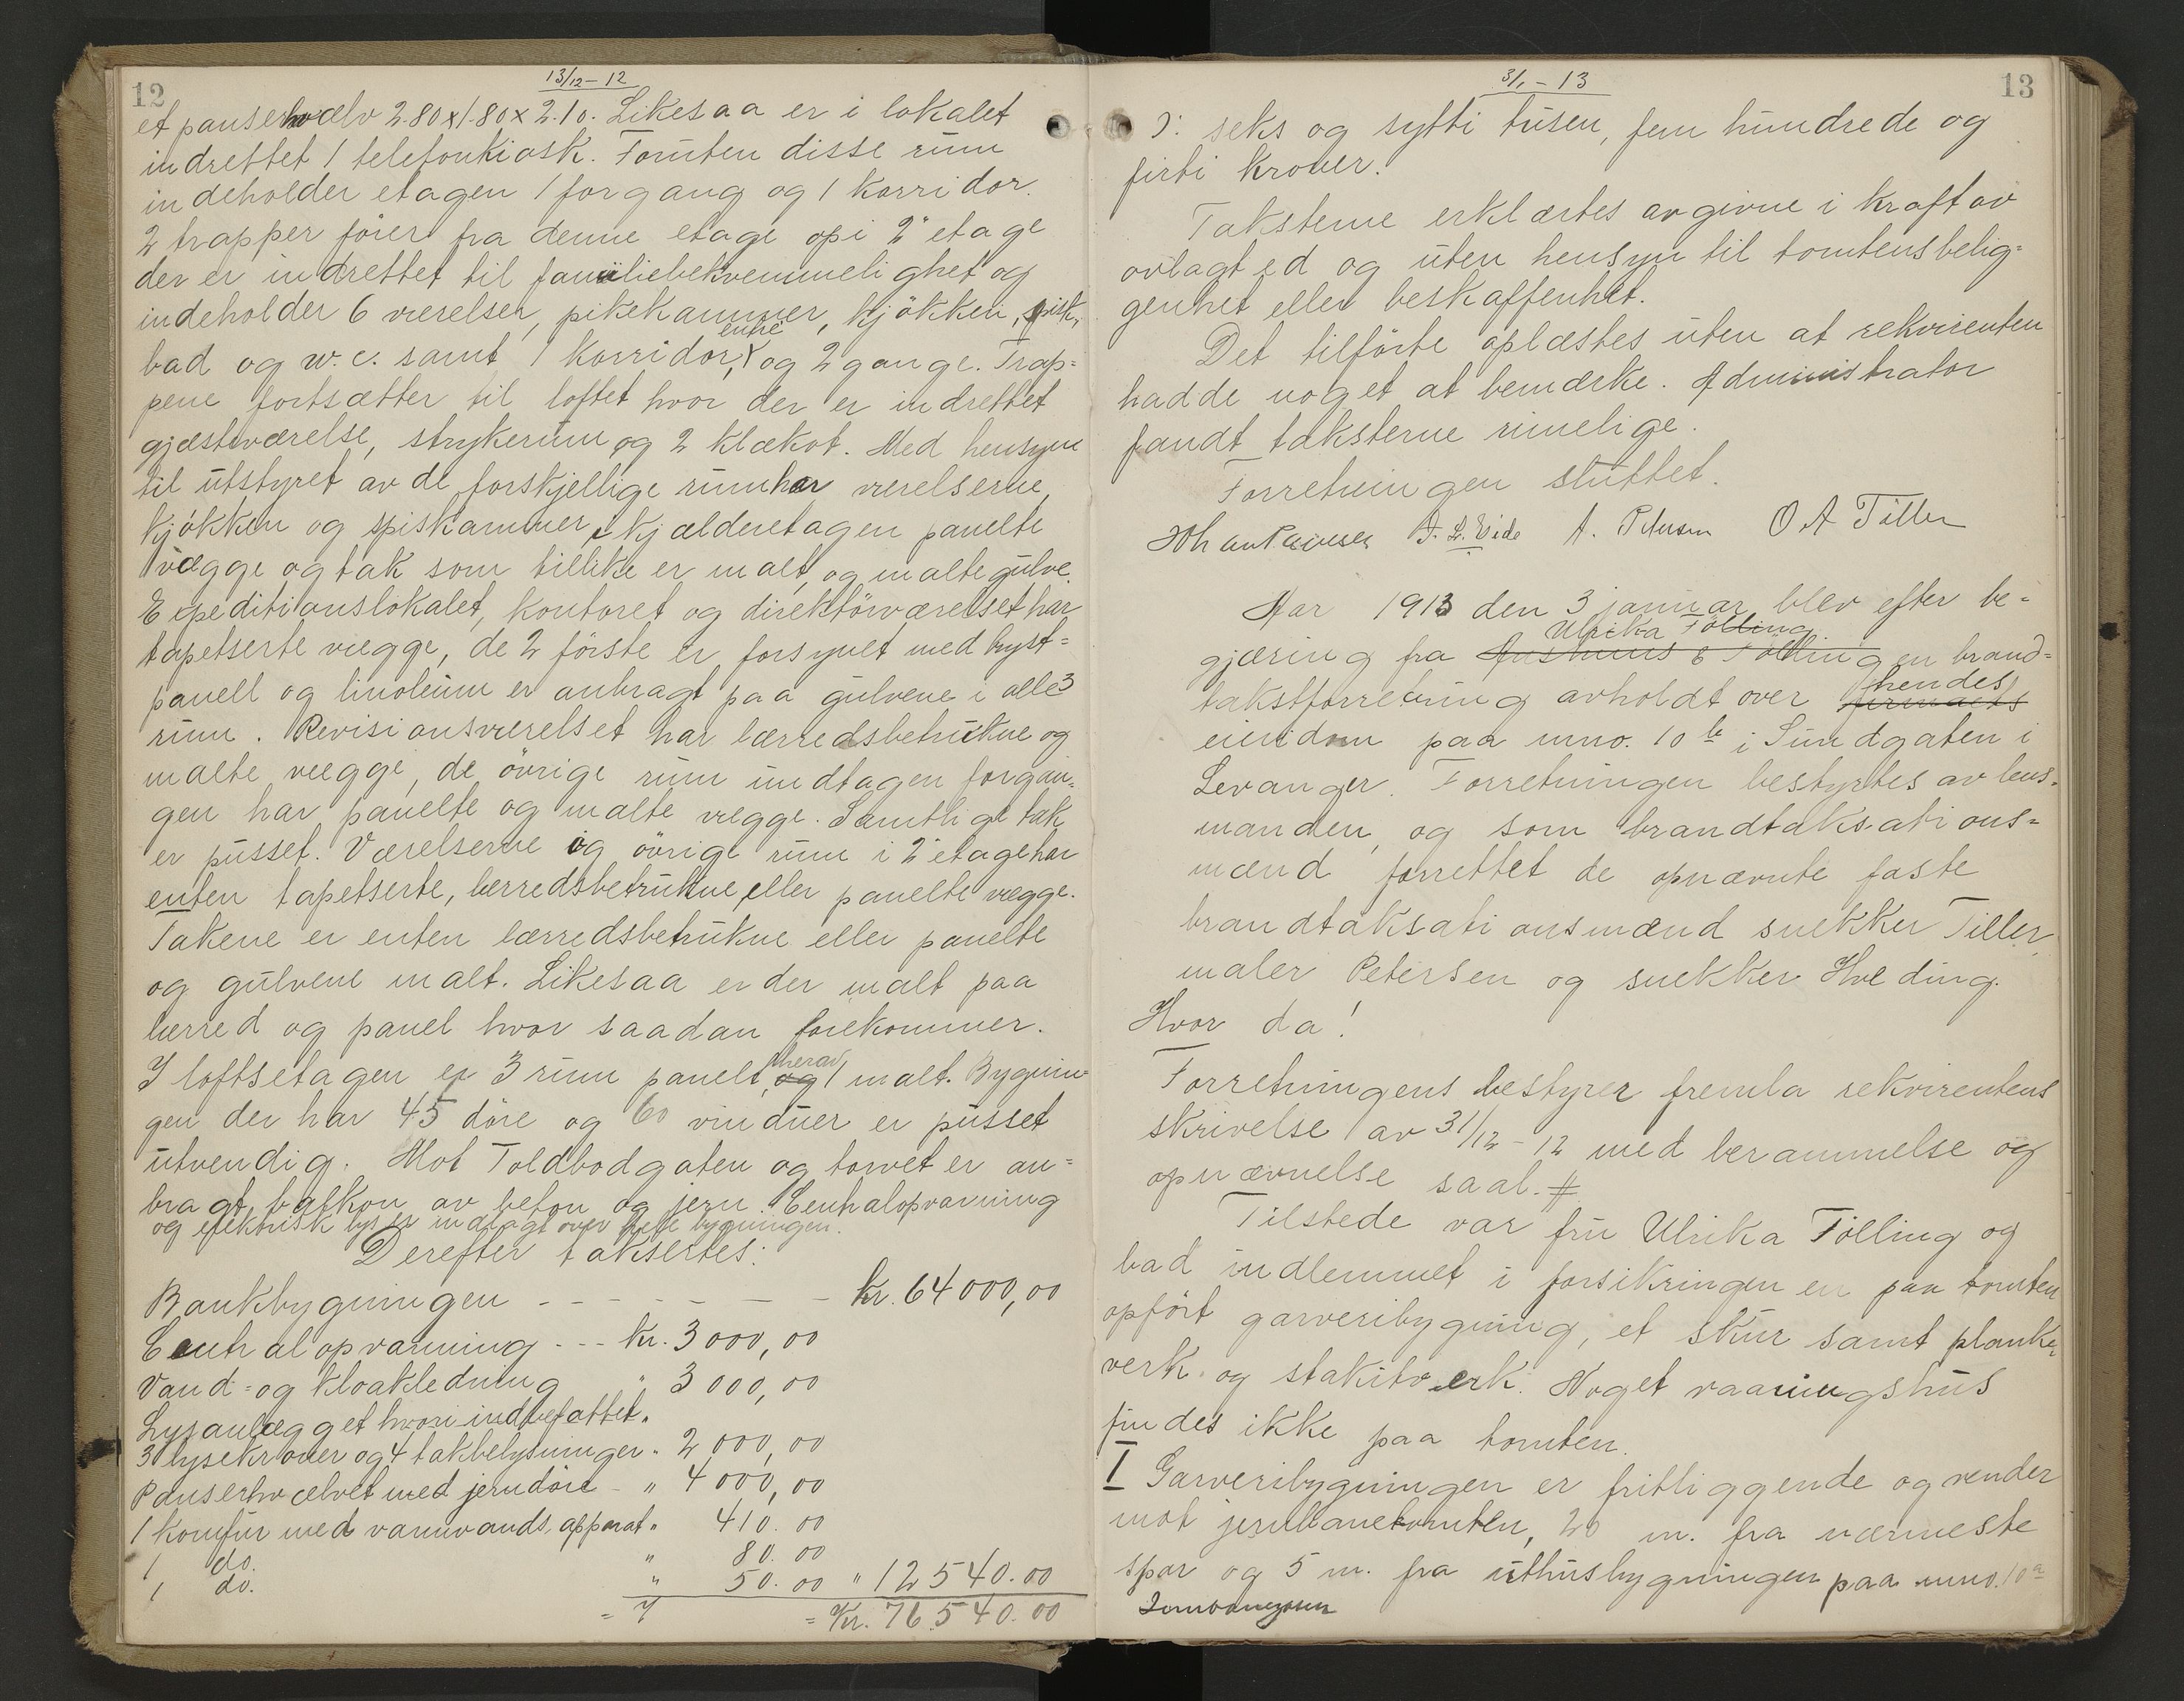 12
13/12 - 12
et panserhvælv 2.80 x 1.80 x 2.10. Likesaa er i lokalet
indrettet 1 telefonkiosk. Foruten disse rum
indeholder etagen 1 forgang og 1 korridor.
2 trapper förer fra denne etage op i 2' etage
der er indrettet til familiebekvemmelighet og
indeholder 6 værelser, pikekammer, kjökken, spisk,
bad og w.c. samt 1 korridor, og 2 gange. Trap=
pene fortsætter til loftet hvor der er indrettet
gjæsteværelse, strykerum og 2 klækot. Med hensyn
til utstyret av de forskjellige rum har værelserne,
kjökken og spiskammer i kjælderetagen panelte
vægge og tak som tillike er malt, og malte gulve.
Expeditionslokalet, kontoret og direktörværelset har
tapetserte vægge, de 2 förste er forsynet med bryst=
panell og linoleum er anbragt paa gulvene i alle 3
rum. Revisionsværelset har lærredsbetrukne og
malte vægge, de övrige rum undtagen forgan=
gen har panelte og malte vægge. Samtlige tak
er pusset. Værelserne og övrige rum i 2' etage har
enten tapetserte, lærredsbetrukne eller panelte vægge.
Takene er enten lærredsbetrukne eller panelte
og gulvene malt. Likesaa er der malt paa
lærred og panel hvor saadan forekommer.
I loftsetagen er 3 rum panelt, og herav 1 malt. Bygnin=
gen der har 45 döre og 60 vinduer er pusset
utvendig. Mot Toldbodgaten og torvet er an=
bragt balkon av beton og jern. Centralopvarming
og elektrisk lys er indlagt over hele bygningen.
Derefter taksertes:
Bankbygningen - - - - - - kr. 64000,00
Centralopvarming - - - kr. 3000,00
Vand= og kloakledning " 3000,00
Lysanlægget hvori indbefattet
3 lysekroner og 4 takbelysninger " 2000,00
Panserhvælvet med jerndöre - " 4000,00
1 komfur med varmvands. apparat " 410.00
1 do. " 80.00
1 do. " 50.00 " 12540.00
= Kr. 76540.00
13
3/1 - 13
ɔ: seks og sytti tusen, fem hundrede og
firti kroner.
Taksterne erklærtes avgivne i kraft av
avlagt ed og uten hensyn til tomtens belig=
genhet eller beskaffenhet.
Det tilförte oplæstes uten at rekvirenten
hadde noget at bemærke. Administrator
fandt taksterne rimelige.
Forretningen sluttet.
A. Petersen O A Tiller
Aar 1913 den 3 januar blev efter be=
Ulrika Tölling
gjæring fra & Tölling en brand=
hendes
takstforretning avholdt over firmaets
eiendom paa mno. 10 b i Sundgaten i
Levanger. Forretningen bestyrtes av lens=
manden, og som brandtaksations=
mænd forrettet de opnævnte faste
brandtaksationsmænd snekker Tiller,
maler Petersen og snekker Hveding.
Hvor da!
Forretningens bestyrer fremla rekvirentens
skrivelse av 31/12 - 12 med berammelse og
opnævnelse saal. #
Tilstede var fru Ulrika Tölling og
bad indlemmet i forsikringen en paa tomten
opfört garveribygning, et skur samt planke=
verk og stakitverk. Noget vaaningshus
findes ikke paa tomten.
I Garveribygningen er fritliggende og vender
mot jernbanetomten, 20 m. fra nærmeste
spor og 5 m. fra uthusbygningen paa mno. 10 a